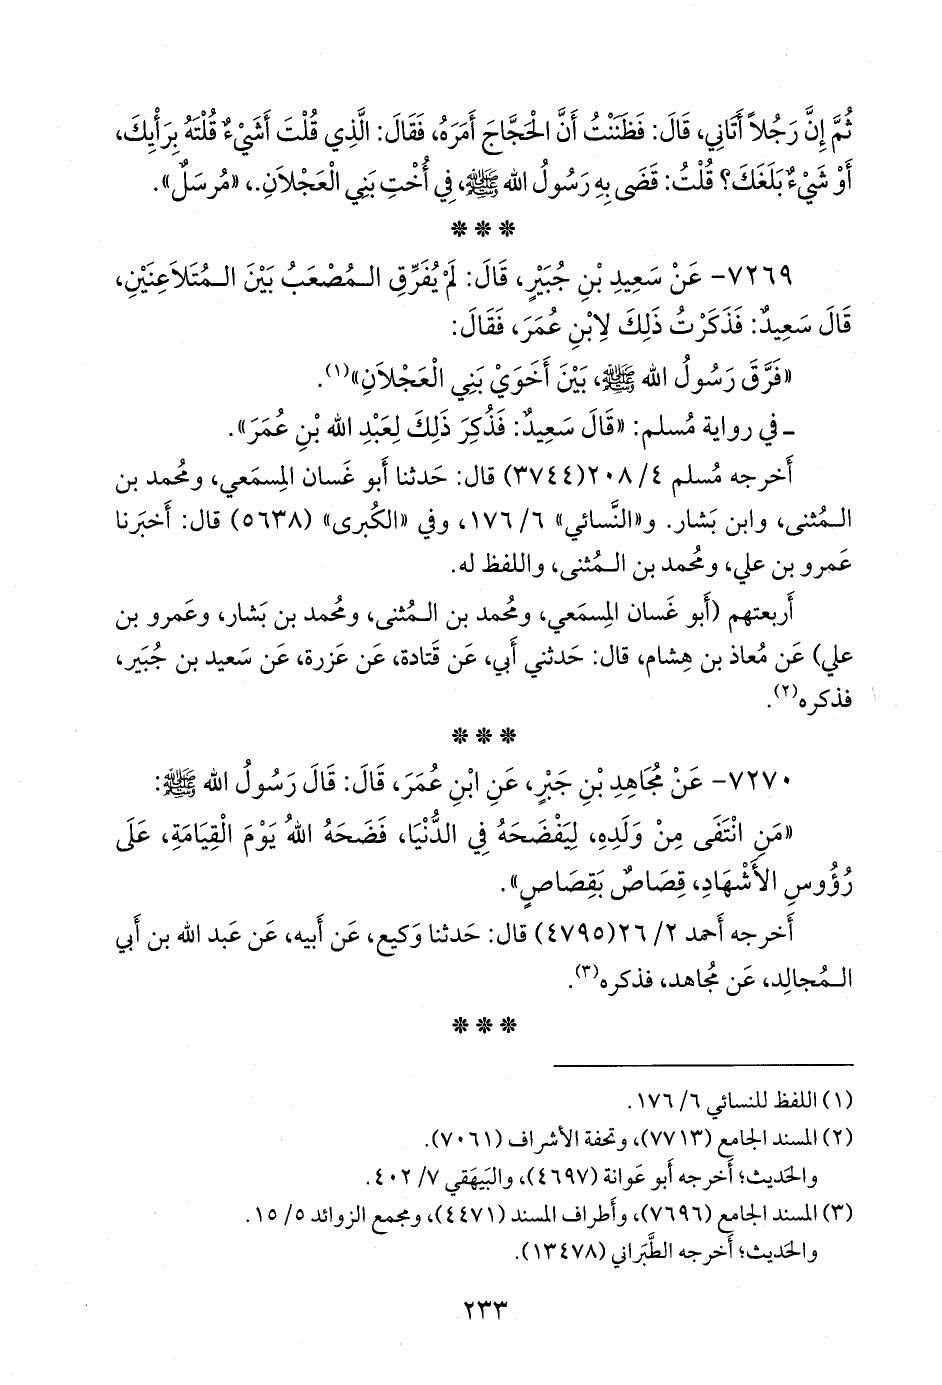 ثُمَّ إِنَّ رَجُلاً أَتَانِي، قَالَ: فَظَنَنْتُ أَنَّ الْحَجَّاجَ أَمَرَهُ، فَقَالَ: الَّذِي قُلْتَ أَشَيْءٌ قُلْتَهُ بِرَأْيِكَ،
أَوْ شَيْءٌ بَلَغَكَ؟ قُلْتُ: قَضَى بِهِ رَسُولُ الله ﷺ، فِي أُخْتِ بَنِي الْعَجْلاَنِ.، «مُرسَلٌ».
* * *
٧٢٦٩- عَنْ سَعِيدِ بْنِ جُبَيْرٍ، قَالَ: لَمْ يُفَرِّقِ الـمُصْعَبُ بَيْنَ الـمُتَلاَعِنَيْنِ،
قَالَ سَعِيدٌ: فَذَكَرْتُ ذَلِكَ لِابْنِ عُمَرَ، فَقَالَ:
«فَرَّقَ رَسُولُ الله ﷺ، بَيْنَ أَخَوَيْ بَنِي الْعَجْلاَنِ»(١).
ـ في رواية مُسلم: «قَالَ سَعِيدٌ: فَذُكِرَ ذَلِكَ لِعَبْدِ الله بْنِ عُمَرَ».
أَخرجه مُسلم ٤/ ٢٠٨(٣٧٤٤) قال: حَدثنا أَبو غَسان المِسمَعي، ومُحمد بن
الـمُثنى، وابن بَشار. و«النَّسائي» ٦/ ١٧٦، وفي «الكُبرى» (٥٦٣٨) قال: أَخبَرنا
عَمرو بن علي، ومُحمد بن الـمُثنى، واللفظ له.
أَربعتهم (أَبو غَسان المِسمَعي، ومُحمد بن الـمُثنى، ومُحمد بن بَشار، وعَمرو بن
علي) عَن مُعاذ بن هِشام، قال: حَدثني أَبي، عَن قَتادة، عَن عَزرة، عَن سَعيد بن جُبَير،
فذكره(٢).
* * *
٧٢٧٠- عَنْ مُجَاهِدِ بْنِ جَبْرٍ، عَنِ ابْنِ عُمَرَ، قَالَ: قَالَ رَسُولُ الله ﷺ:
«مَنِ انْتَفَى مِنْ وَلَدِهِ، لِيَفْضَحَهُ فِي الدُّنْيَا، فَضَحَهُ اللهُ يَوْمَ الْقِيَامَةِ، عَلَى
رُؤُوسِ الأَشْهَادِ، قِصَاصٌ بَقِصَاصٍ».
أَخرجه أَحمد ٢/ ٢٦(٤٧٩٥) قال: حَدثنا وَكيع، عَن أَبيه، عَن عَبد الله بن أَبي
الـمُجالِد، عَن مُجاهد، فذكره(٣).
* * *
(١) اللفظ للنسائي ٦/ ١٧٦.
(٢) المسند الجامع (٧٧١٣)، وتحفة الأشراف (٧٠٦١).
والحَديث؛ أَخرجه أَبو عَوانة (٤٦٩٧)، والبَيهَقي ٧/ ٤٠٢.
(٣) المسند الجامع (٧٦٩٦)، وأَطراف المسند (٤٤٧١)، ومجمع الزوائد ٥/ ١٥.
والحَديث؛ أَخرجه الطَّبَراني (١٣٤٧٨).
٢٣٣